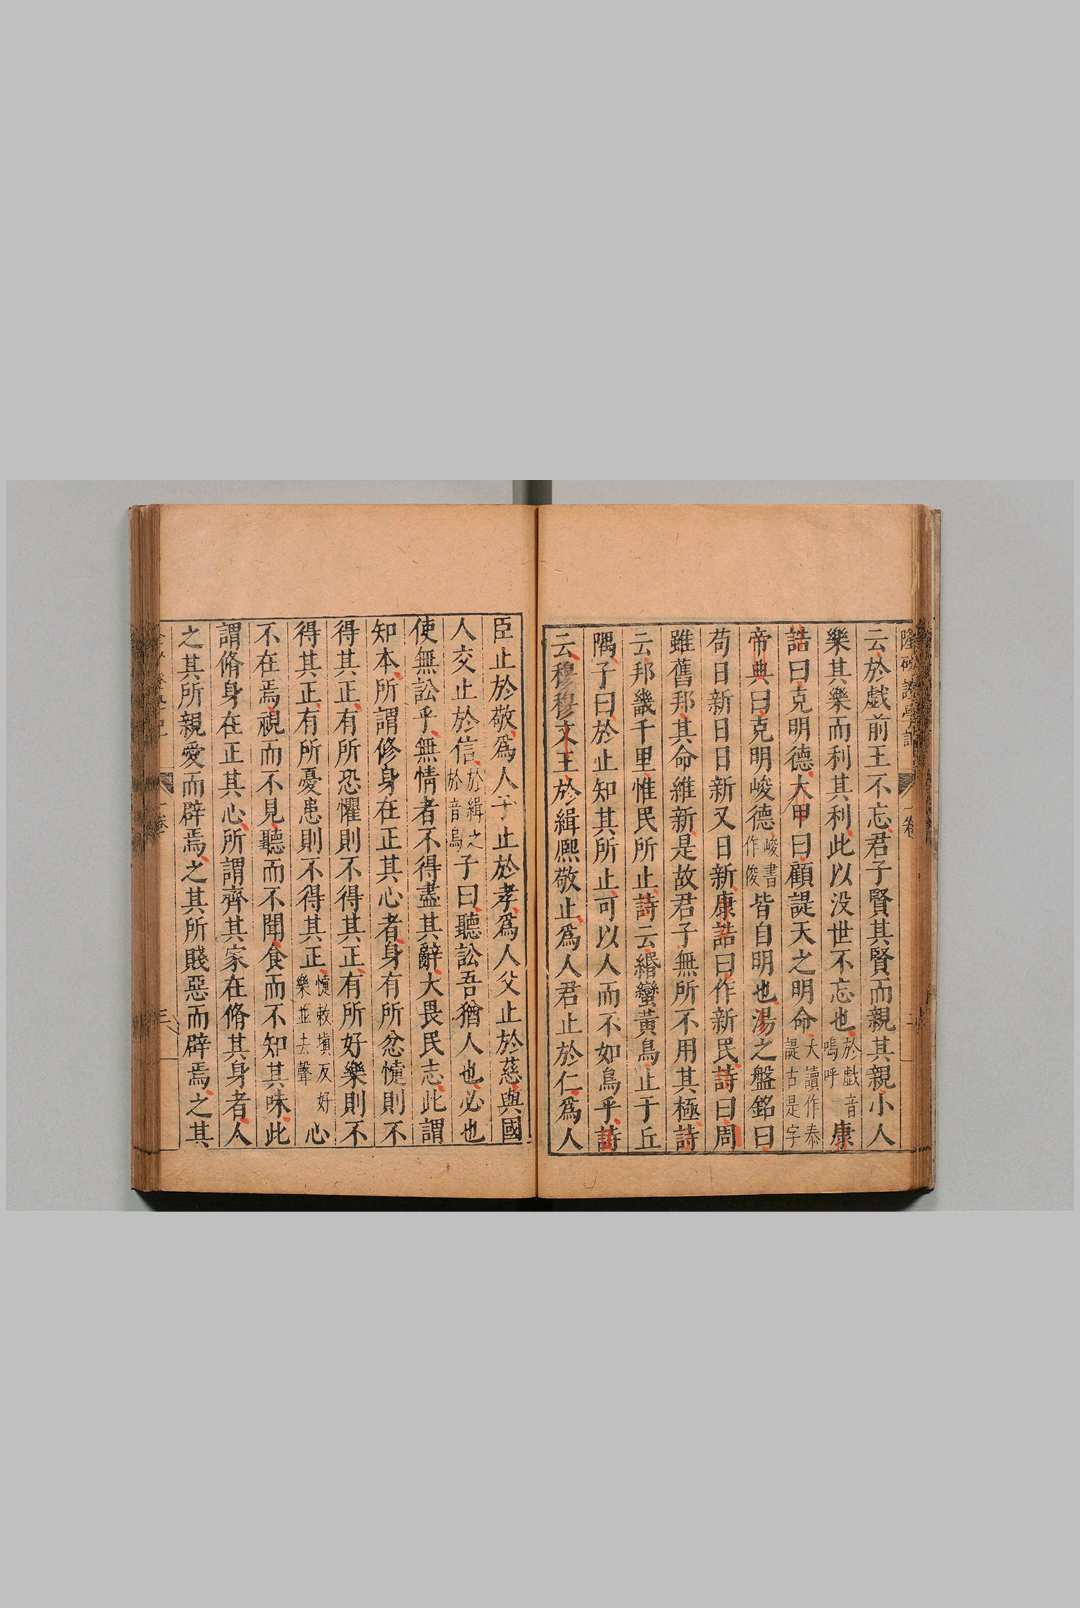 云於戲前王不忘君子賢其賢而親其親小人
樂其樂而利其利此以没世不忘也於戲音嗚呼康
誥曰克明德大甲曰顧諟天之明命大讀作泰諟古是字
帝典曰克明峻德峻書作俊皆自明也湯之盤銘曰
苟日新日日新又日新康誥曰作新民詩曰周
雖舊邦其命維新是故君子無所不用其極詩
云邦畿千里惟民所止詩云緡蠻黃鳥止于丘
隅子曰於止知其所止可以人而不如鳥乎詩
云穆穆文王於緝熈敬止爲人君止於仁爲人
臣止於敬爲人子止於孝爲人父止於慈與國
人交止於信於緝之於音烏子曰聽訟吾猶人也必也
使無訟乎無情者不得盡其辭大畏民志此謂
知本所謂修身在正其心者身有所忿懥則不
得其正有所恐懼則不得其正有所好樂則不
得其正有所憂患則不得其正懥敕慎反好樂並去聲心
不在焉視而不見聽而不聞食而不知其味此
謂脩身在正其心所謂齊其家在脩其身者人
之其所親愛而辟焉之其所賤惡而辟焉之其